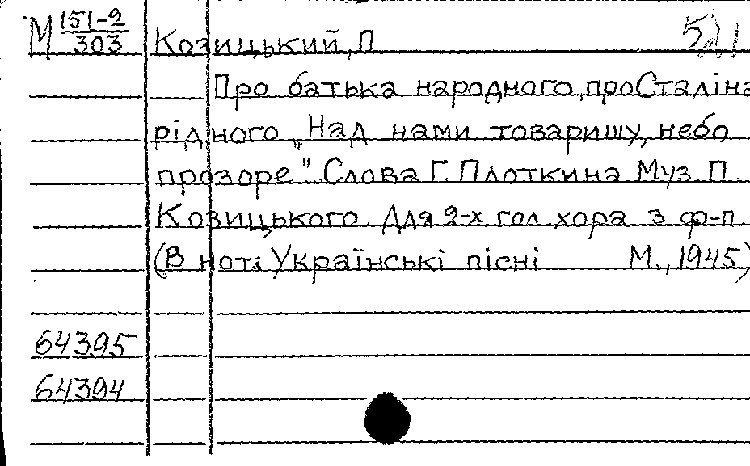 М 151-2/303 Козицький, П 521
Про батька народного, про Сталіна
рідного „Над нами товаришу, небо
прозоре." Слова Г. Плоткина Муз. П.
Козицького. Для 2-х гол. хора з ф-п.
(В нот.: Українські пісні М., 1945)
64395
64394